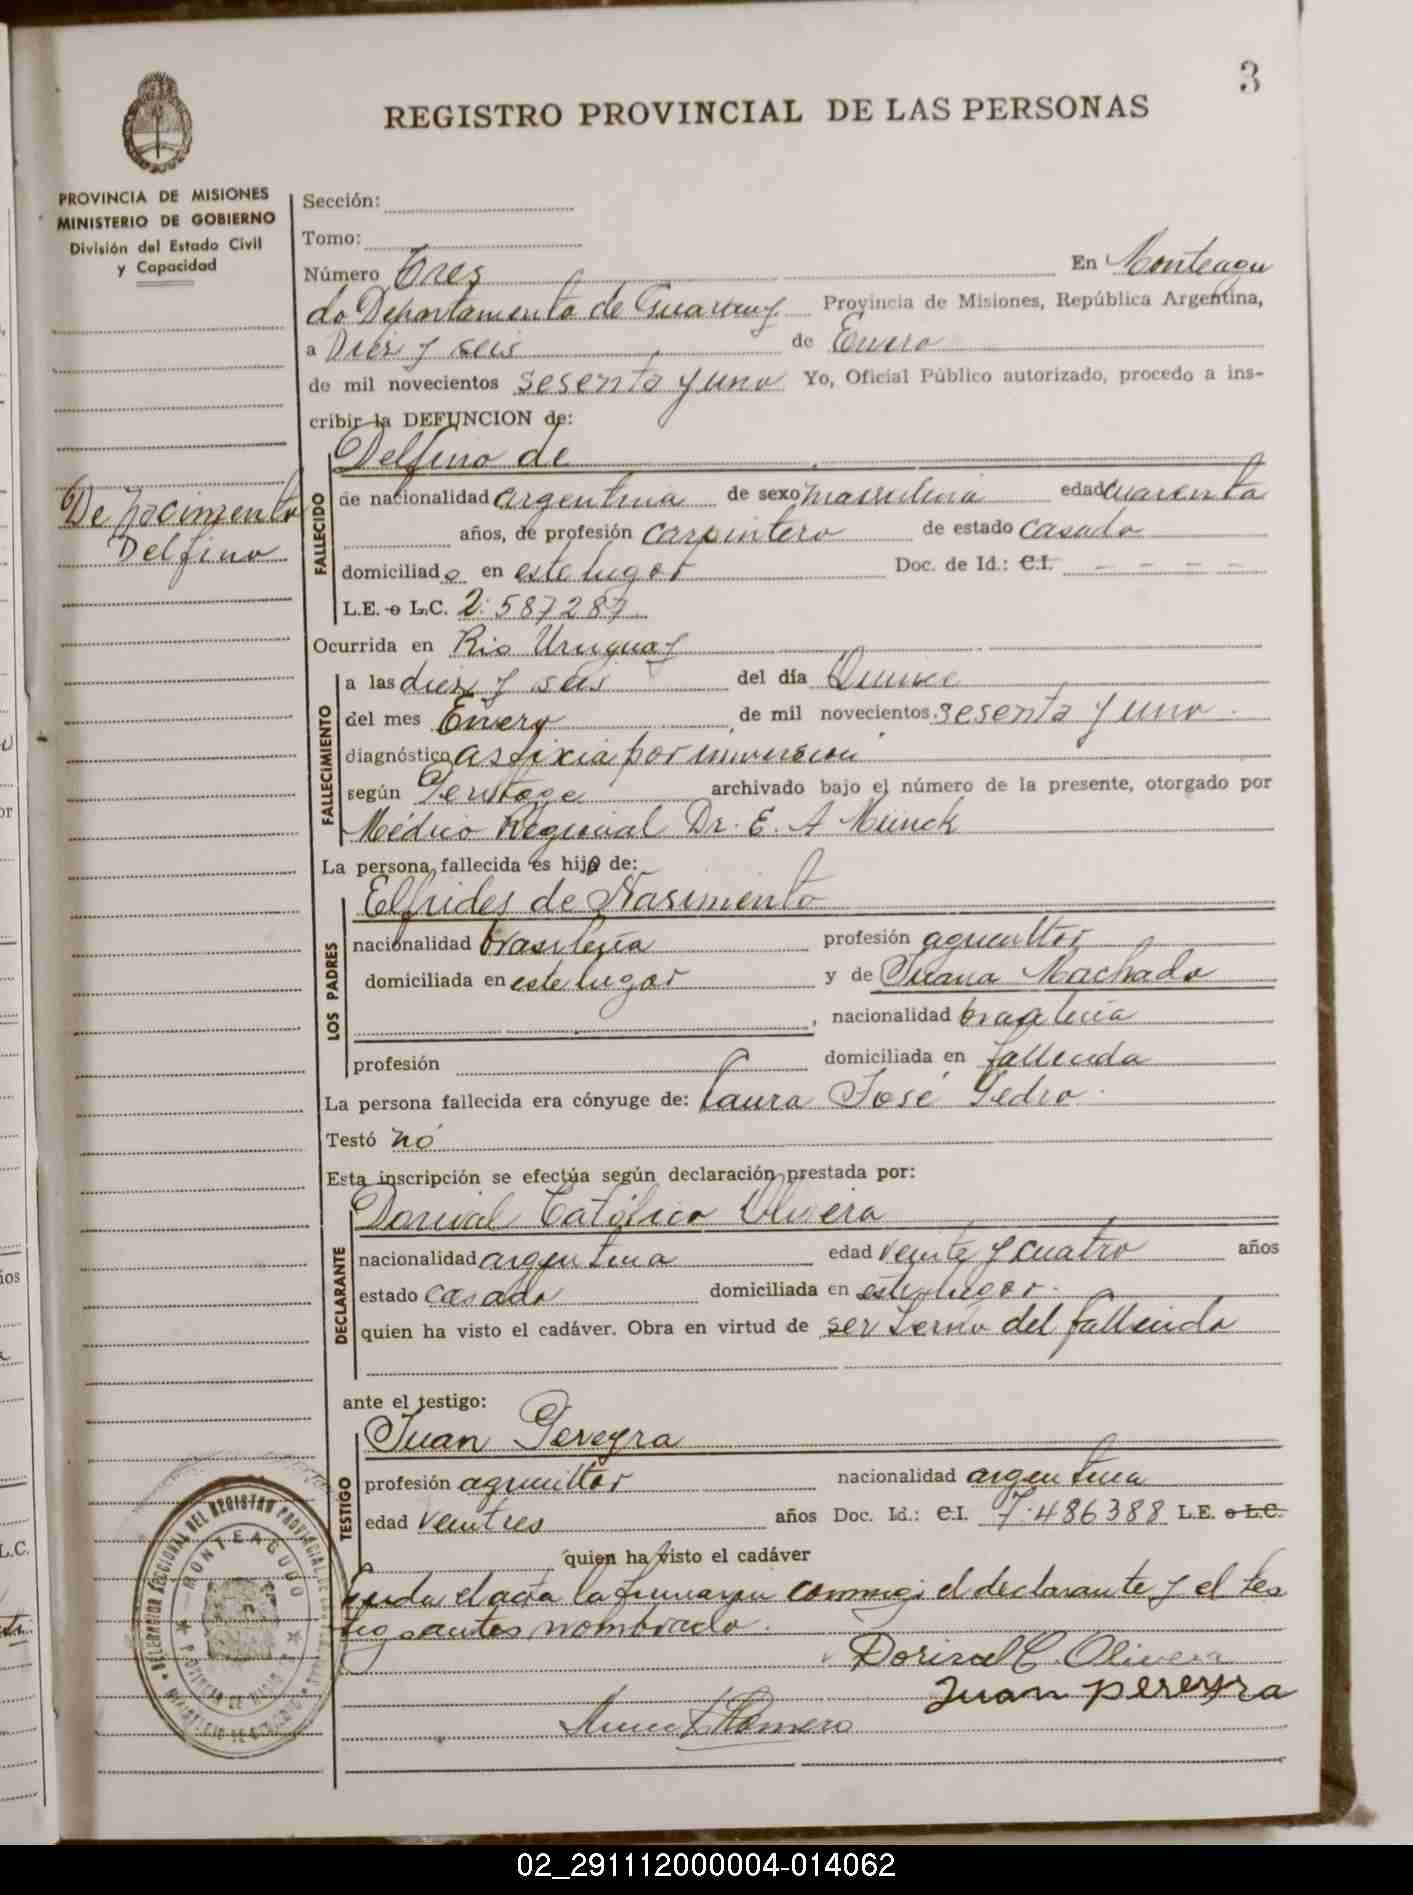 3
REGISTRO PROVINCIAL DE LAS PERSONAS
PROVINCIA DE MISIONES
MINISTERIO DE GOBIERNO
División del Estado Civil
y Capacidad
De Nacimento
Delfino
Sección:
Tomo:
Número Tres En Monteagu
do Departamento de Guarany Provincia de Misiones, República Argentina,
a Diez y seis de Enero
de mil novecientos sesenta y uno Yo, Oficial Público autorizado, procedo a ins-
cribir la DEFUNCION de:
FALLECIDO
Delfino de
de nacionalidad argentina de sexo masculino edad cuarenta
años, de profesión carpintero de estado casado
domiciliado en este lugar Doc. de Id.: C.I. - - - -
L.E. o L.C. 2.587287
Ocurrida en Rio Uruguay
FALLECIMIENTO
a las diez y seis del día Quince
del mes Enero de mil novecientos sesenta y uno
diagnóstico asfixia por inmersion
según archivado bajo el número de la presente, otorgado por
Médico Regional Dr. E. A Münch
La persona fallecida es hijo de:
LOS PADRES
Elfrides de Nasimento
nacionalidad brasileña profesión agricultor
domiciliada en este lugar y de Juana Machado
, nacionalidad brasileña
profesión domiciliada en fallecida
La persona fallecida era cónyuge de: Laura José Pedro
Testó nó
Esta inscripción se efectúa según declaración prestada por:
DECLARANTE
Dorival Católico Olivera
nacionalidad argentina edad veinte y cuatro años
estado casado domiciliada en este lugar
quien ha visto el cadáver. Obra en virtud de ser del fallecido
ante el testigo:
TESTIGO
Juan Pereyra
profesión agricultor nacionalidad argentina
edad veintres años Doc. Id.: C.I. 7.486388 L.E. o L.C.
quien ha visto el cadáver
Leida el acta la firman conmigo el declarante y el tes
tigo antes nombrado.
Dorival C. Olivera
Juan Pereyra
Romero
DELEGACION SECCIONAL DEL REGISTRO PROVINCIAL DE LAS PERSONAS
MONTEAGUDO
PROVINCIA DE MISIONES
02_291112000004-014062